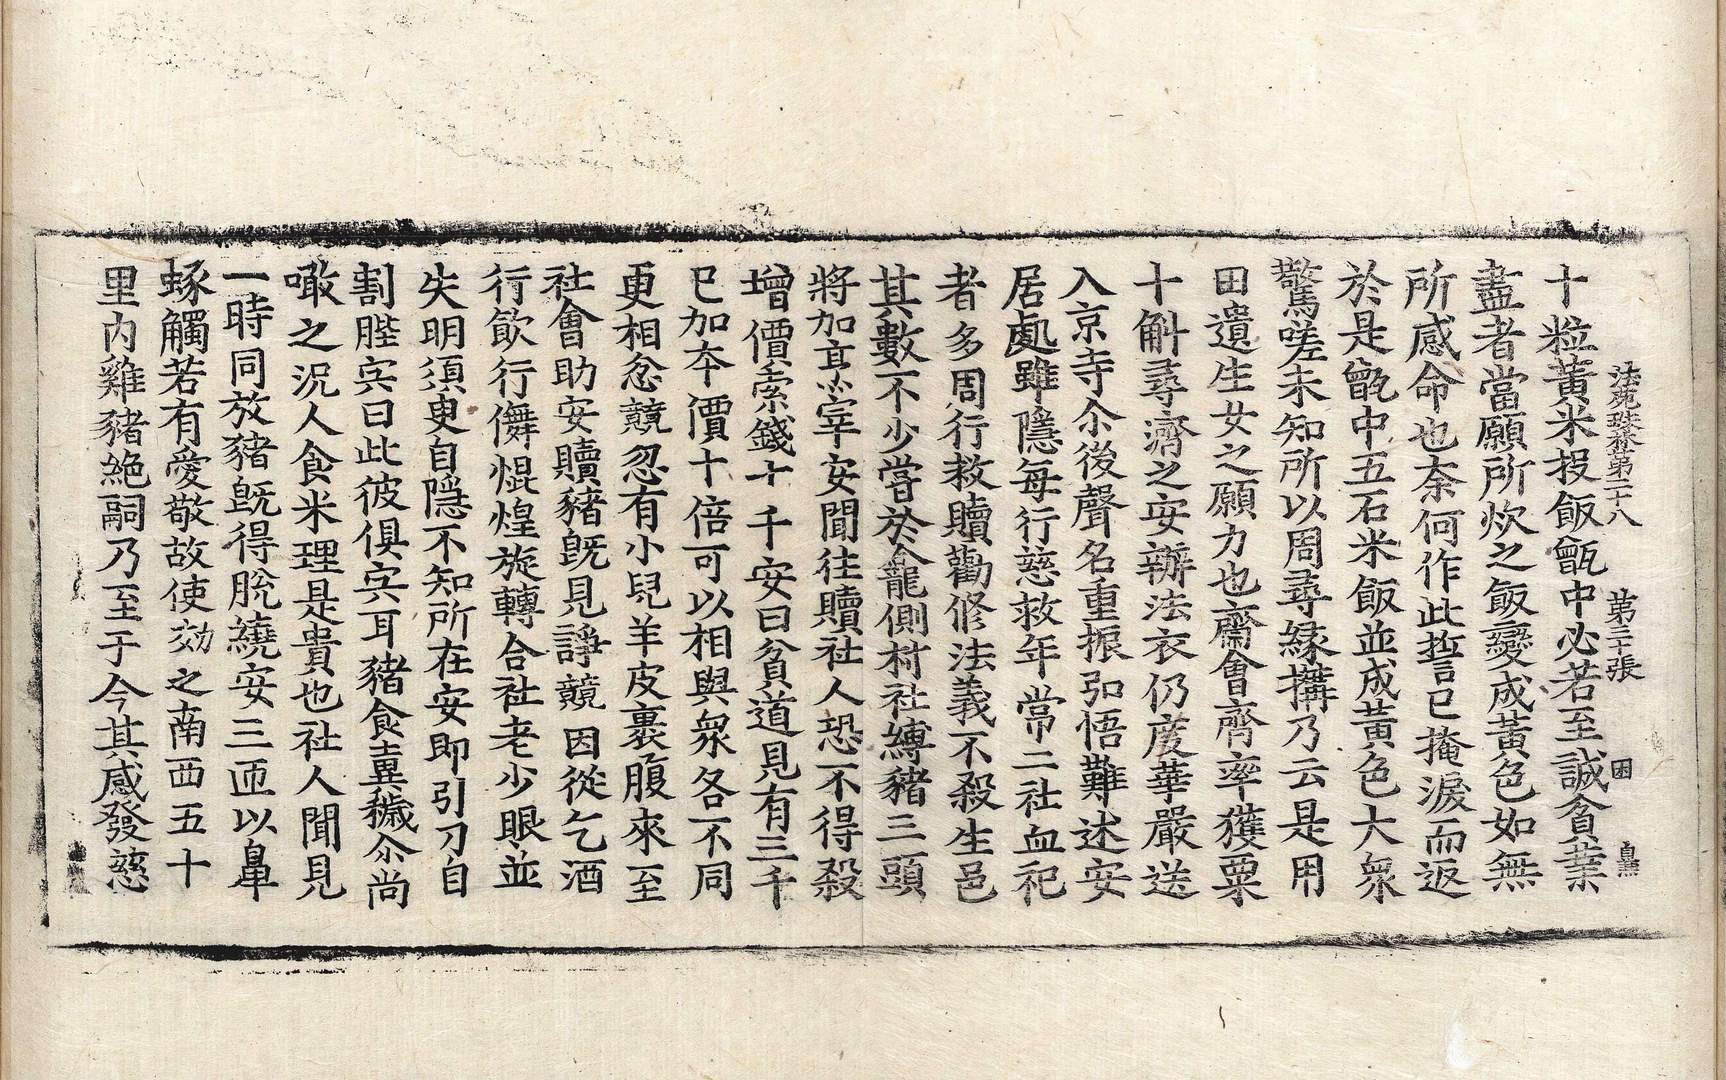 法苑珠林第二十八 第三十張 困
十粒黃米投飯甑中必若至誠貧業
盡者當願所炊之飯變成黃色如無
所感命也柰何作此誓已掩淚而返
於是甑中五石米飯並成黃色大衆
驚嗟未知所以周尋緣搆乃云是用
田遺生女之願力也齋會齊率獲粟
十斛尋濟之安辦法衣仍度華嚴送
入京寺尒後聲名重振弘悟難述安
居處雖隱每行慈救年常二社血祀
者多周行救贖勸修法義不殺生邑
其數不少嘗於龕側村社縛豬三頭
將加烹宰安聞往贖社人恐不得殺
增價索錢十千安曰貧道見有三千
已加夲價十倍可以相與衆各不同
更相忿競忽有小兒羊皮裹腹來至
社會助安贖豬旣見諍競因從乞酒
行飮行儛焜煌旋轉合社老少眼並
失明須臾自隱不知所在安即引刀自
割䏶宍曰此彼俱宍耳豬食糞穢尒尚
噉之況人食米理是貴也社人聞見
一時同放豬旣得脫繞安三匝以鼻
啄觸若有愛敬故使効之南西五十
里內雞豬絶嗣乃至于今其感發慈